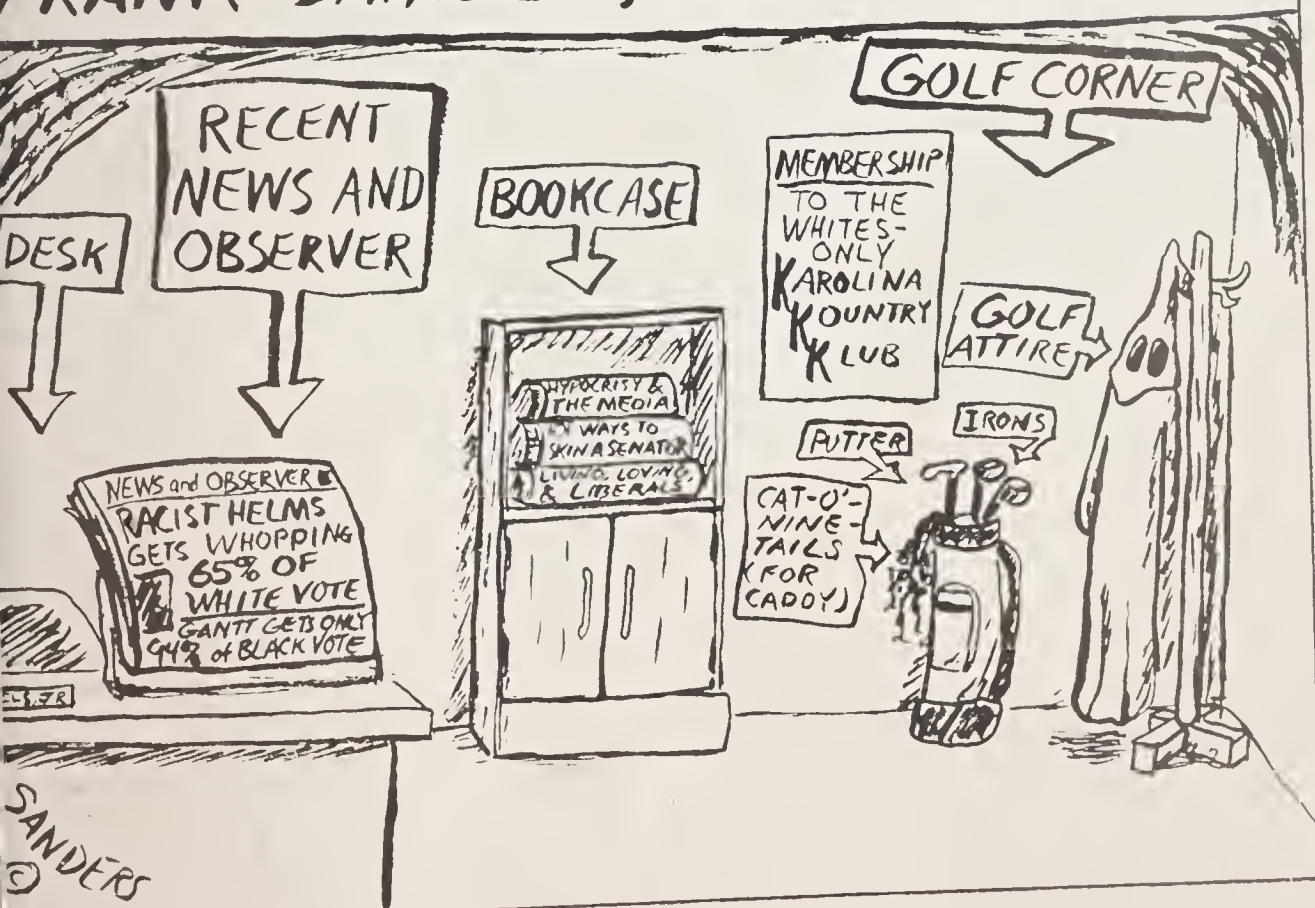 FRANK
DESK
RECENT
NEWS AND
OBSERVER
BOOKCASE
GOLF CORNER
MEMBERSHIP
TO THE
WHITES-
ONLY
KAROLINA
KOUNTRY
KLUB
GOLF
ATTIRE
PUTTER
IRONS
CAT-O'-
NINE-
TAILS
(FOR
CADDY)
HYPOCRISY &
THE MEDIA
WAYS TO
SKIN A SENATOR
LIVING, LOVING,
& LIBERALS
NEWS and OBSERVER
RACIST HELMS
GETS WHOPPING
65% OF
WHITE VOTE
GANTT GETS ONLY
94% of BLACK VOTE
ELS, JR
SANDERS
©